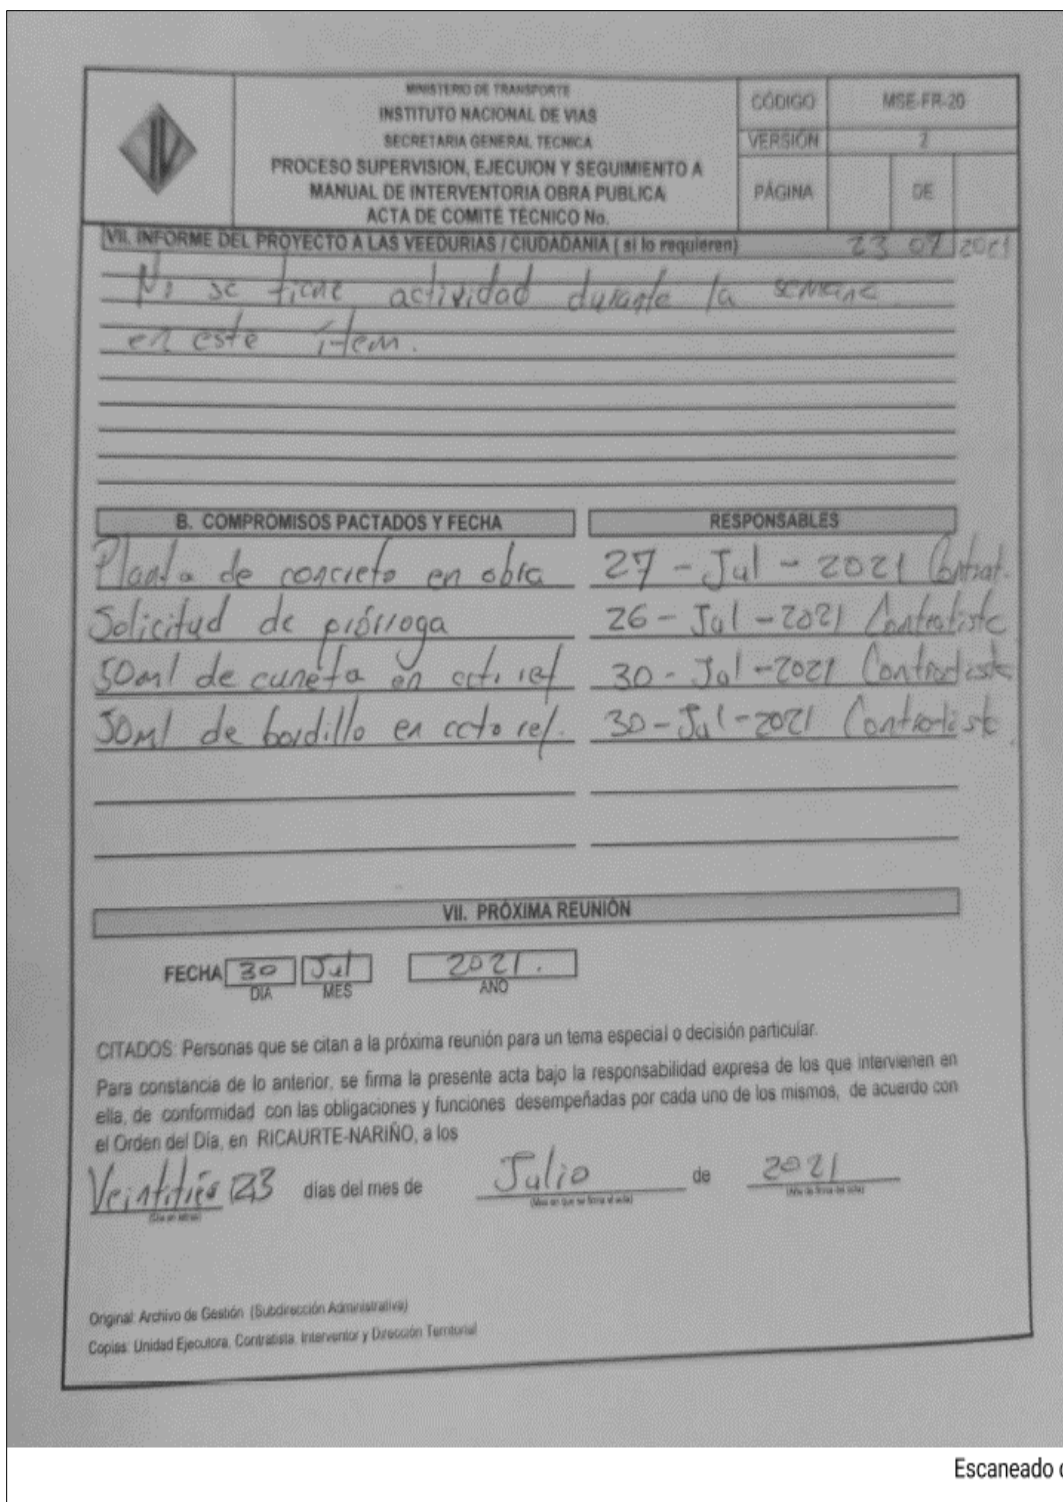 MINISTERIO DE TRANSPORTE
INSTITUTO NACIONAL DE VIAS
SECRETARIA GENERAL TECNICA
PROCESO SUPERVISION, EJECUION Y SEGUIMIENTO A
MANUAL DE INTERVENTORIA OBRA PUBLICA
ACTA DE COMITÉ TÉCNICO No.
CÓDIGO MSE-FR-20
VERSIÓN 2
PÁGINA DE
VII. INFORME DEL PROYECTO A LAS VEEDURIAS / CIUDADANIA ( si lo requieren) 23 07 2021
No se tiene actividad durante la semana
en este ítem.
B. COMPROMISOS PACTADOS Y FECHA RESPONSABLES
Planta de concreto en obra 27 - Jul - 2021 Contrat.
Solicitud de prórroga 26 - Jul - 2021 Contratista
50ml de cuneta en ccto ref 30 - Jul - 2021 Contratista
50ml de bordillo en ccto ref. 30 - Jul - 2021 Contratista
VII. PRÓXIMA REUNIÓN
FECHA 30 Jul 2021.
DIA MES AÑO
CITADOS: Personas que se citan a la próxima reunión para un tema especial o decisión particular.
Para constancia de lo anterior, se firma la presente acta bajo la responsabilidad expresa de los que intervienen en
ella, de conformidad con las obligaciones y funciones desempeñadas por cada uno de los mismos, de acuerdo con
el Orden del Día, en RICAURTE-NARIÑO, a los
Veintitrés 23 días del mes de Julio de 2021
(Día en letras) (Mes en que se firma el acta) (Año de firma del acta)
Original: Archivo de Gestión (Subdirección Administrativa)
Copias: Unidad Ejecutora, Contratista, Interventor y Dirección Territorial
Escaneado